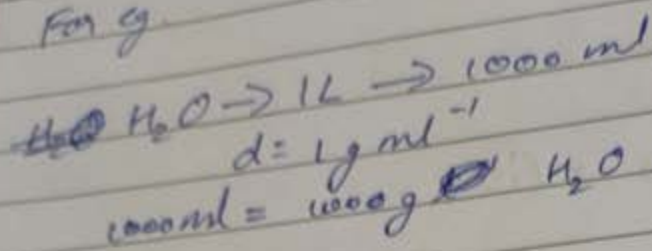 For eg
H₂O → 1L → 1000 ml
d = 1 g ml⁻¹
1000ml = 1000g H₂O